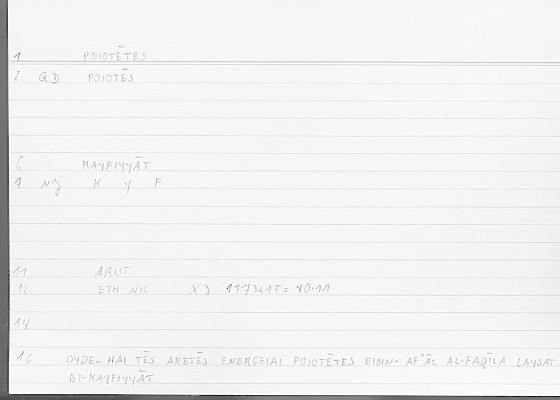 1 POIOTĒTES
2 QD POIOTĒS
6 KAYFIYYĀT
7 NJ K Y F
11 ARIST
12 ETH NIC X3 1173a15 = 10.11
14
16 OYDE- HAI TĒS ARETĒS ENERGEIAI POIOTĒTES EISIN- AFʿĀL AL-FAḌĪLA LAYSAT
BI-KAYFIYYĀT